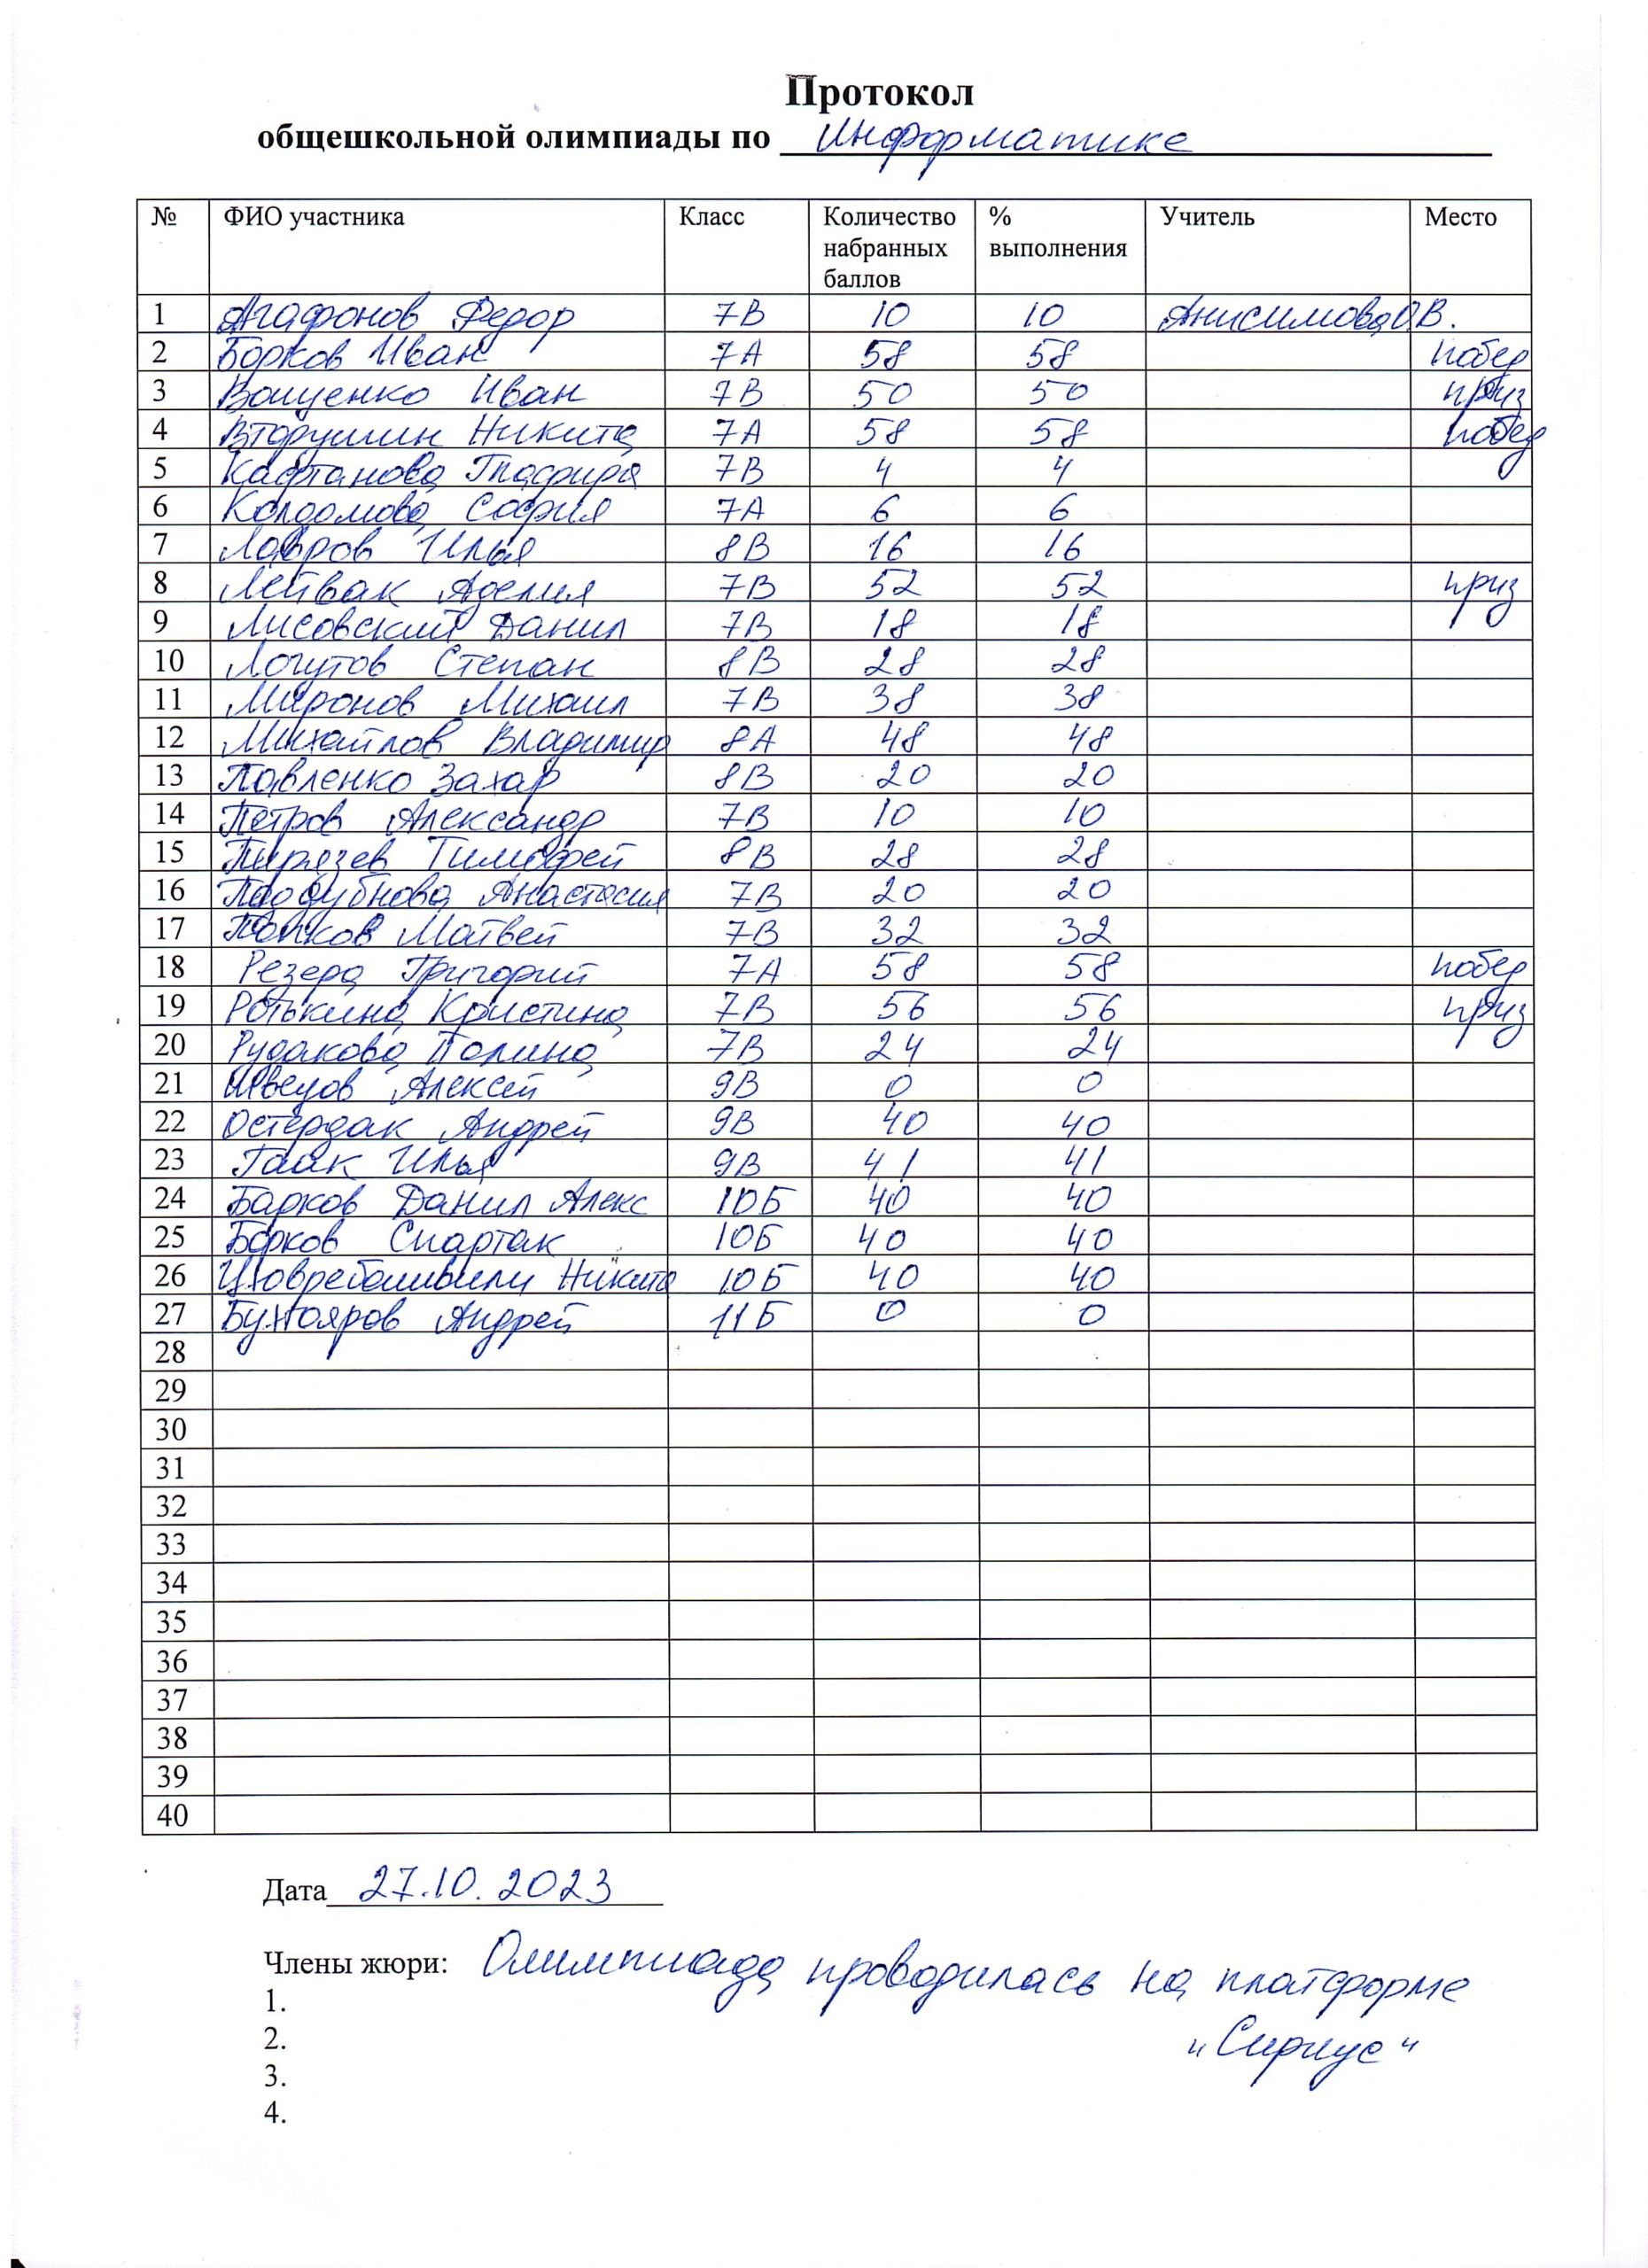 Протокол
общешкольной олимпиады по Информатике
№ ФИО участника Класс Количество набранных баллов % выполнения Учитель Место
1 Агафонов Федор 7В 10 10 Анисимова О.В.
2 Борков Иван 7А 58 58 побед
3 Ващенко Иван 7В 50 50 приз
4 Вторушин Никита 7А 58 58 побед
5 Кафтанова Глафира 7В 4 4
6 Колдомова София 7А 6 6
7 Лавров Илья 8В 16 16
8 Лейвак Аделия 7В 52 52 приз
9 Лисовский Данил 7В 18 18
10 Логутов Степан 8В 28 28
11 Миронов Михаил 7В 38 38
12 Михайлов Владимир 8А 48 48
13 Павленко Захар 8В 20 20
14 Петров Александр 7В 10 10
15 Пирязев Тимофей 8В 28 28
16 Поддубнова Анастасия 7В 20 20
17 Попков Матвей 7В 32 32
18 Резера Григорий 7А 58 58 побед
19 Ротькина Кристина 7В 56 56 приз
20 Рудакова Полина 7В 24 24
21 Швецов Алексей 9В 0 0
22 Остердак Андрей 9В 40 40
23 Гаак Илья 9В 41 41
24 Барков Данил Алекс 10Б 40 40
25 Борков Спартак 10Б 40 40
26 Цховребашвили Никита 10Б 40 40
27 Бухтояров Андрей 11Б 0 0
28
29
30
31
32
33
34
35
36
37
38
39
40
Дата 27.10.2023
Члены жюри: Олимпиада проводилась на платформе
1.
2. "Сириус"
3.
4.